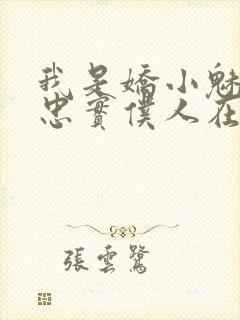 我是嬌小魅
忠實僕人在
張雲鷺